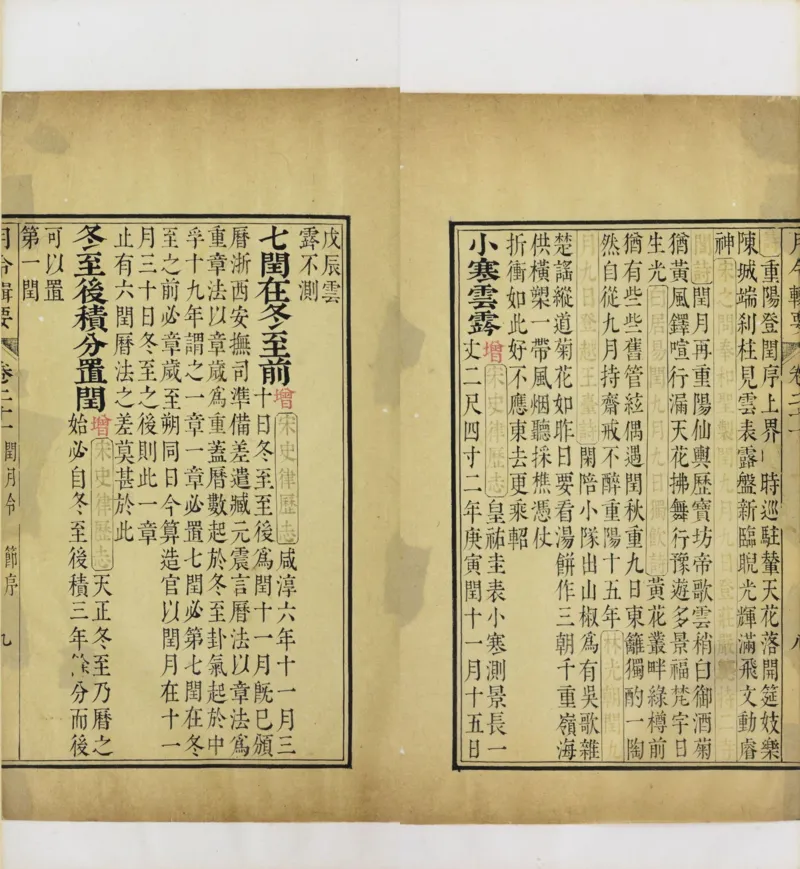 月令輯要 卷二十
重陽登閏序上界 時巡駐輦天花落開筵妓樂
陳城端刹柱見雲表露盤新臨睨光輝滿飛文動睿
神
閏月再重陽仙輿歷寶坊帝歌雲稍白御酒菊
猶黃風鐸喧行漏天花拂舞行豫遊多景福梵宇日
生光白居易閏九月九日獨飲詩黃花叢畔綠樽前
猶有些些舊管絃偶遇閏秋重九日東籬獨酌一陶
然自從九月持齋戒不醉重陽十五年
閑陪小隊出山椒為有吳歌雜
楚謠縱道菊花如昨日要看湯餅作三朝千重嶺海
供橫槊一帶風烟聽採樵憑仗
折衝如此好不應東去更乘軺
小寒雲霧增宋史律歷志皇祐圭表小寒測景長一
丈二尺四寸二年庚寅閏十一月十五日
戊辰雲
霧不測
七閏在冬至前增宋史律歷志咸淳六年十一月三
十日冬至至後為閏十一月既已頒
曆浙西安撫司準備差遣臧元震言曆法以章法為
重章法以章歲為重蓋曆數起於冬至卦氣起於中
孚十九年謂之一章一章必置七閏必第七閏在冬
至之前必章歲至朔同日今算造官以閏月在十一
月三十日冬至之後則此一章
止有六閏曆法之差莫甚於此
冬至後積分置閏增宋史律歷志天正冬至乃曆之
始必自冬至後積三年餘分而後
可以置
第一閏
月令輯要 卷二十一 閏月令 節序 九